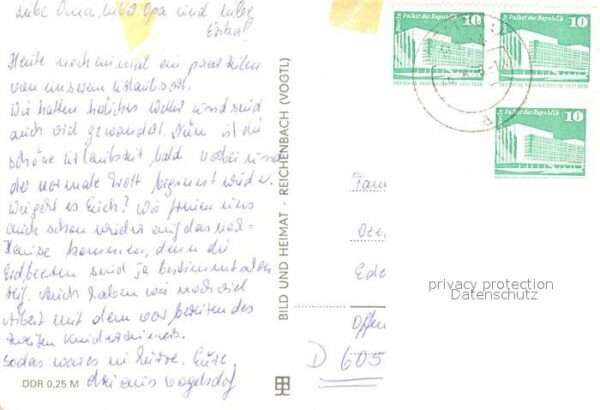 Liebe Oma, lieber Opa und liebe
Erika!
Heute noch einmal ein paar Zeilen
von unserem Urlaubsort.
Wir hatten herrliches Wetter und sind
auch viel gewandert. Nun ist die
schöne Urlaubszeit bald vorbei und
der normale Trott beginnt wieder.
Wie geht es Euch? Wir freuen uns
auch schon wieder auf das nach-
hause kommen, denn die
Erdbeeren sind ja bestimmt schon
reif. Auch haben wir noch viel
Arbeit mit dem vorbereiten des
zweiten Kinderzimmers.
Sodas wares in Kürze. Eure
drei aus Vogelsdorf
DDR 0,25 M
BILD UND HEIMAT · REICHENBACH (VOGTL)
Berlin Palast der Republik 10
Berlin Palast der Republik 10
Berlin Palast der Republik 10
Fam
Offen
D 605
privacy protection
Datenschutz